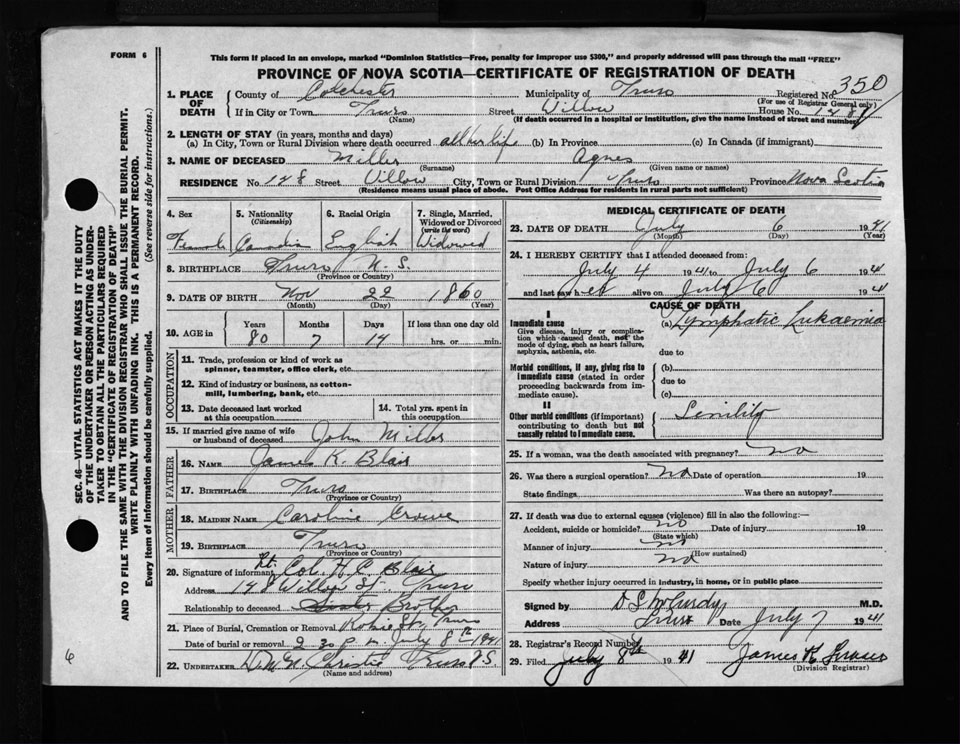 FORM 6
This form if placed in an envelope, marked "Dominion Statistics—Free, penalty for improper use $300," and properly addressed will pass through the mail "FREE"
PROVINCE OF NOVA SCOTIA—CERTIFICATE OF REGISTRATION OF DEATH
350
1. PLACE OF DEATH
County of Colchester Municipality of Truro Registered No.
(For use of Registrar General only)
If in City or Town Truro Street Willow House No. 128
(Name) (If death occurred in a hospital or institution, give the name instead of street and number)
2. LENGTH OF STAY (in years, months and days)
(a) In City, Town or Rural Division where death occurred all her life (b) In Province (c) In Canada (if immigrant)
3. NAME OF DECEASED Miller Agnes
(Surname) (Given name or names)
RESIDENCE No. 128 Street Willow City, Town or Rural Division Truro Province Nova Scotia
(Residence means usual place of abode. Post Office Address for residents in rural parts not sufficient)
4. Sex 5. Nationality (Citizenship) 6. Racial Origin 7. Single, Married, Widowed or Divorced (write the word)
Female Canadian English Widowed
8. BIRTHPLACE Truro N.S.
(Province or Country)
9. DATE OF BIRTH Nov 22 1860
(Month) (Day) (Year)
10. AGE in Years Months Days If less than one day old
80 7 14 hrs. or min.
OCCUPATION
11. Trade, profession or kind of work as spinner, teamster, office clerk, etc.
12. Kind of industry or business, as cotton-mill, lumbering, bank, etc.
13. Date deceased last worked at this occupation 14. Total yrs. spent in this occupation
15. If married give name of wife or husband of deceased John Miller
FATHER
16. NAME James K. Blair
17. BIRTHPLACE Truro
(Province or Country)
MOTHER
18. MAIDEN NAME Caroline Crowe
19. BIRTHPLACE Truro
(Province or Country)
20. Signature of informant Lt. Col. H. C. Blair
Address 128 Willow St. Truro
Relationship to deceased Sister Brother
21. Place of Burial, Cremation or Removal Robie St., Truro
Date of burial or removal 2 30 p.m. July 8th 1941
22. UNDERTAKER Christie Truro N.S.
(Name and address)
MEDICAL CERTIFICATE OF DEATH
23. DATE OF DEATH July 6 1941
(Month) (Day) (Year)
24. I HEREBY CERTIFY that I attended deceased from:
July 4 1941 to July 6 1941
and last saw h er alive on July 6 1941
CAUSE OF DEATH
I
Immediate cause (a) Lymphatic Lukaemia
Give disease, injury or complication which caused death, not the mode of dying, such as heart failure, asphyxia, asthenia, etc.
due to
Morbid conditions, if any, giving rise to immediate cause (stated in order proceeding backwards from immediate cause).
(b)
due to
(c)
II
Other morbid conditions (if important) contributing to death but not causally related to immediate cause.
Senility
25. If a woman, was the death associated with pregnancy? No
26. Was there a surgical operation? No Date of operation 19
State findings Was there an autopsy?
27. If death was due to external causes (violence) fill in also the following:—
Accident, suicide or homicide? no Date of injury 19
(State which)
Manner of injury no
(How sustained)
Nature of injury no
Specify whether injury occurred in industry, in home, or in public place
Signed by D S McCurdy M.D.
Address Truro Date July 7 1941
28. Registrar's Record Number
29. Filed July 8th 1941 James K
(Division Registrar)
SEC. 46—VITAL STATISTICS ACT MAKES IT THE DUTY
OF THE UNDERTAKER OR PERSON ACTING AS UNDERTAKER TO OBTAIN ALL THE PARTICULARS REQUIRED
IN THE "CERTIFICATE OF REGISTRATION OF DEATH"
AND TO FILE THE SAME WITH THE DIVISION REGISTRAR WHO SHALL ISSUE THE BURIAL PERMIT.
WRITE PLAINLY WITH UNFADING INK. THIS IS A PERMANENT RECORD.
Every item of information should be carefully supplied. (See reverse side for instructions.)
6